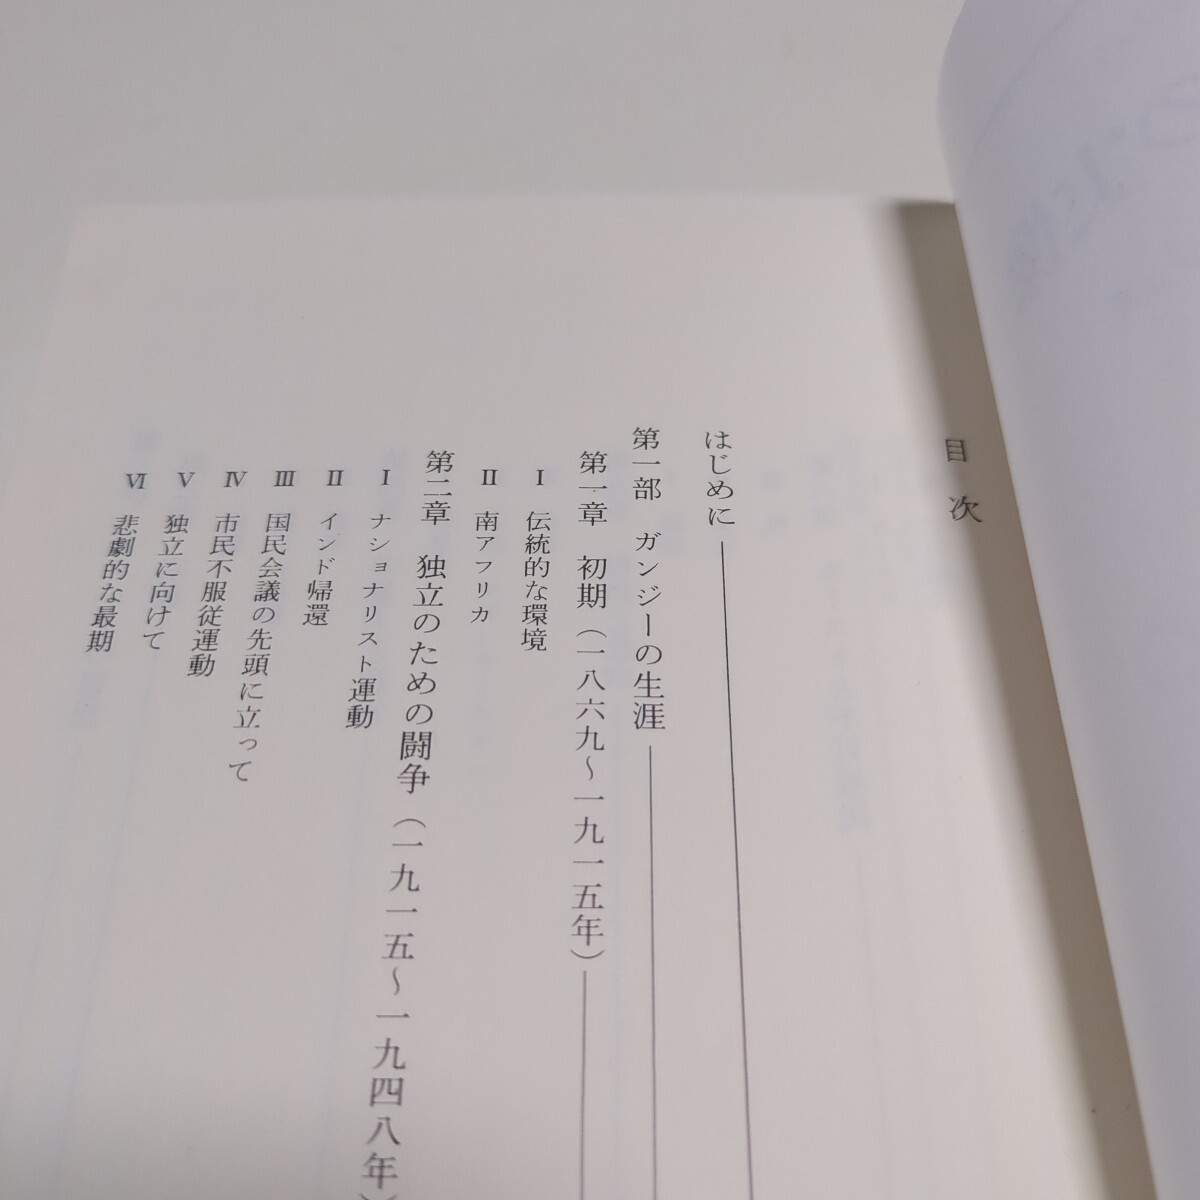 目次
はじめに
第一部 ガンジーの生涯
第一章 初期（一八六九〜一九一五年）
Ⅰ 伝統的な環境
Ⅱ 南アフリカ
第二章 独立のための闘争（一九一五〜一九四八年）
Ⅰ ナショナリスト運動
Ⅱ インド帰還
Ⅲ 国民会議の先頭に立って
Ⅳ 市民不服従運動
Ⅴ 独立に向けて
Ⅵ 悲劇的な最期